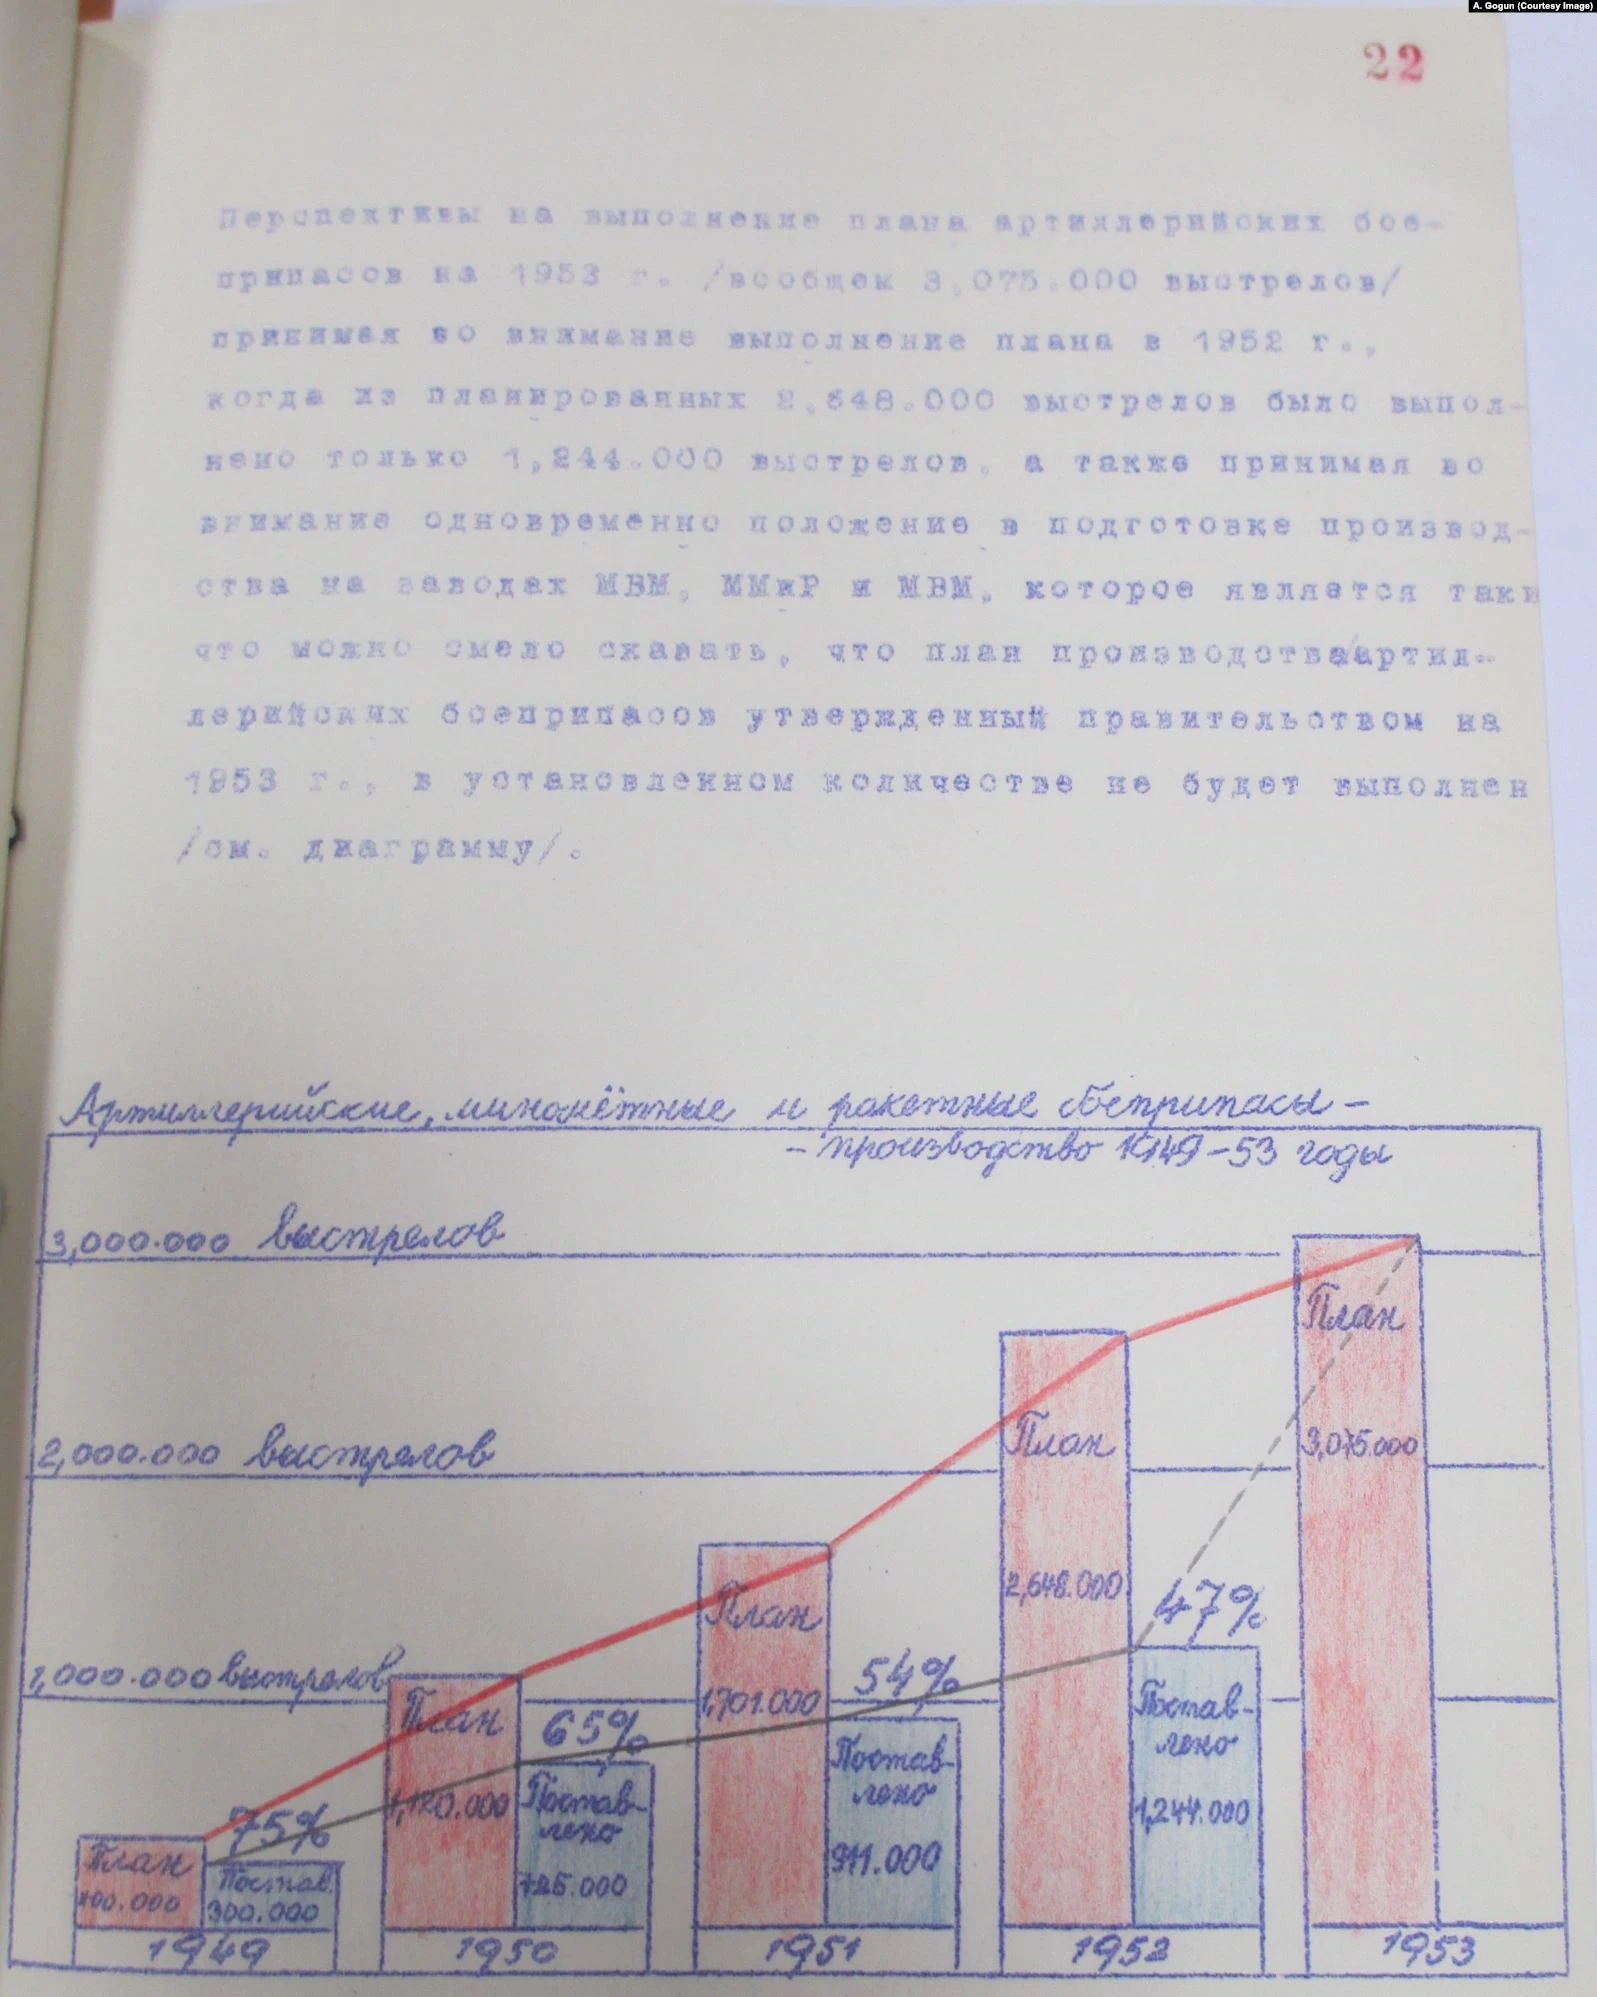 A. Gogun (Courtesy Image)
22
Перспективы на выполнение плана артиллерийских бое-
припасов на 1953 г. /вообщем 3,075.000 выстрелов/
принимая во внимание выполнение плана в 1952 г.,
когда из планированных 2,648.000 выстрелов было выпол-
нено только 1,244.000 выстрелов, а также принимая во
внимание одновременно положение в подготовке производ-
ства на заводах МВМ, ММиР и МВМ, которое является таки
что можно смело сказать, что план производства/артил-
лерийских боеприпасов утвержденный правительством на
1953 г., в установленном количестве не будет выполнен
/см. диаграмму/.
Артиллерийские, миномётные и ракетные боеприпасы –
– производство 1949–53 годы
3,000.000 выстрелов
План
План
3,075.000
2,000.000 выстрелов
План
2,648.000
47%
1,000.000 выстрелов
План
1,701.000
54%
Постав-
лено
1,244.000
65%
Постав-
лено
911.000
1,120.000
Постав-
лено
725.000
75%
План
400.000
Постав.
300.000
1949
1950
1951
1952
1953